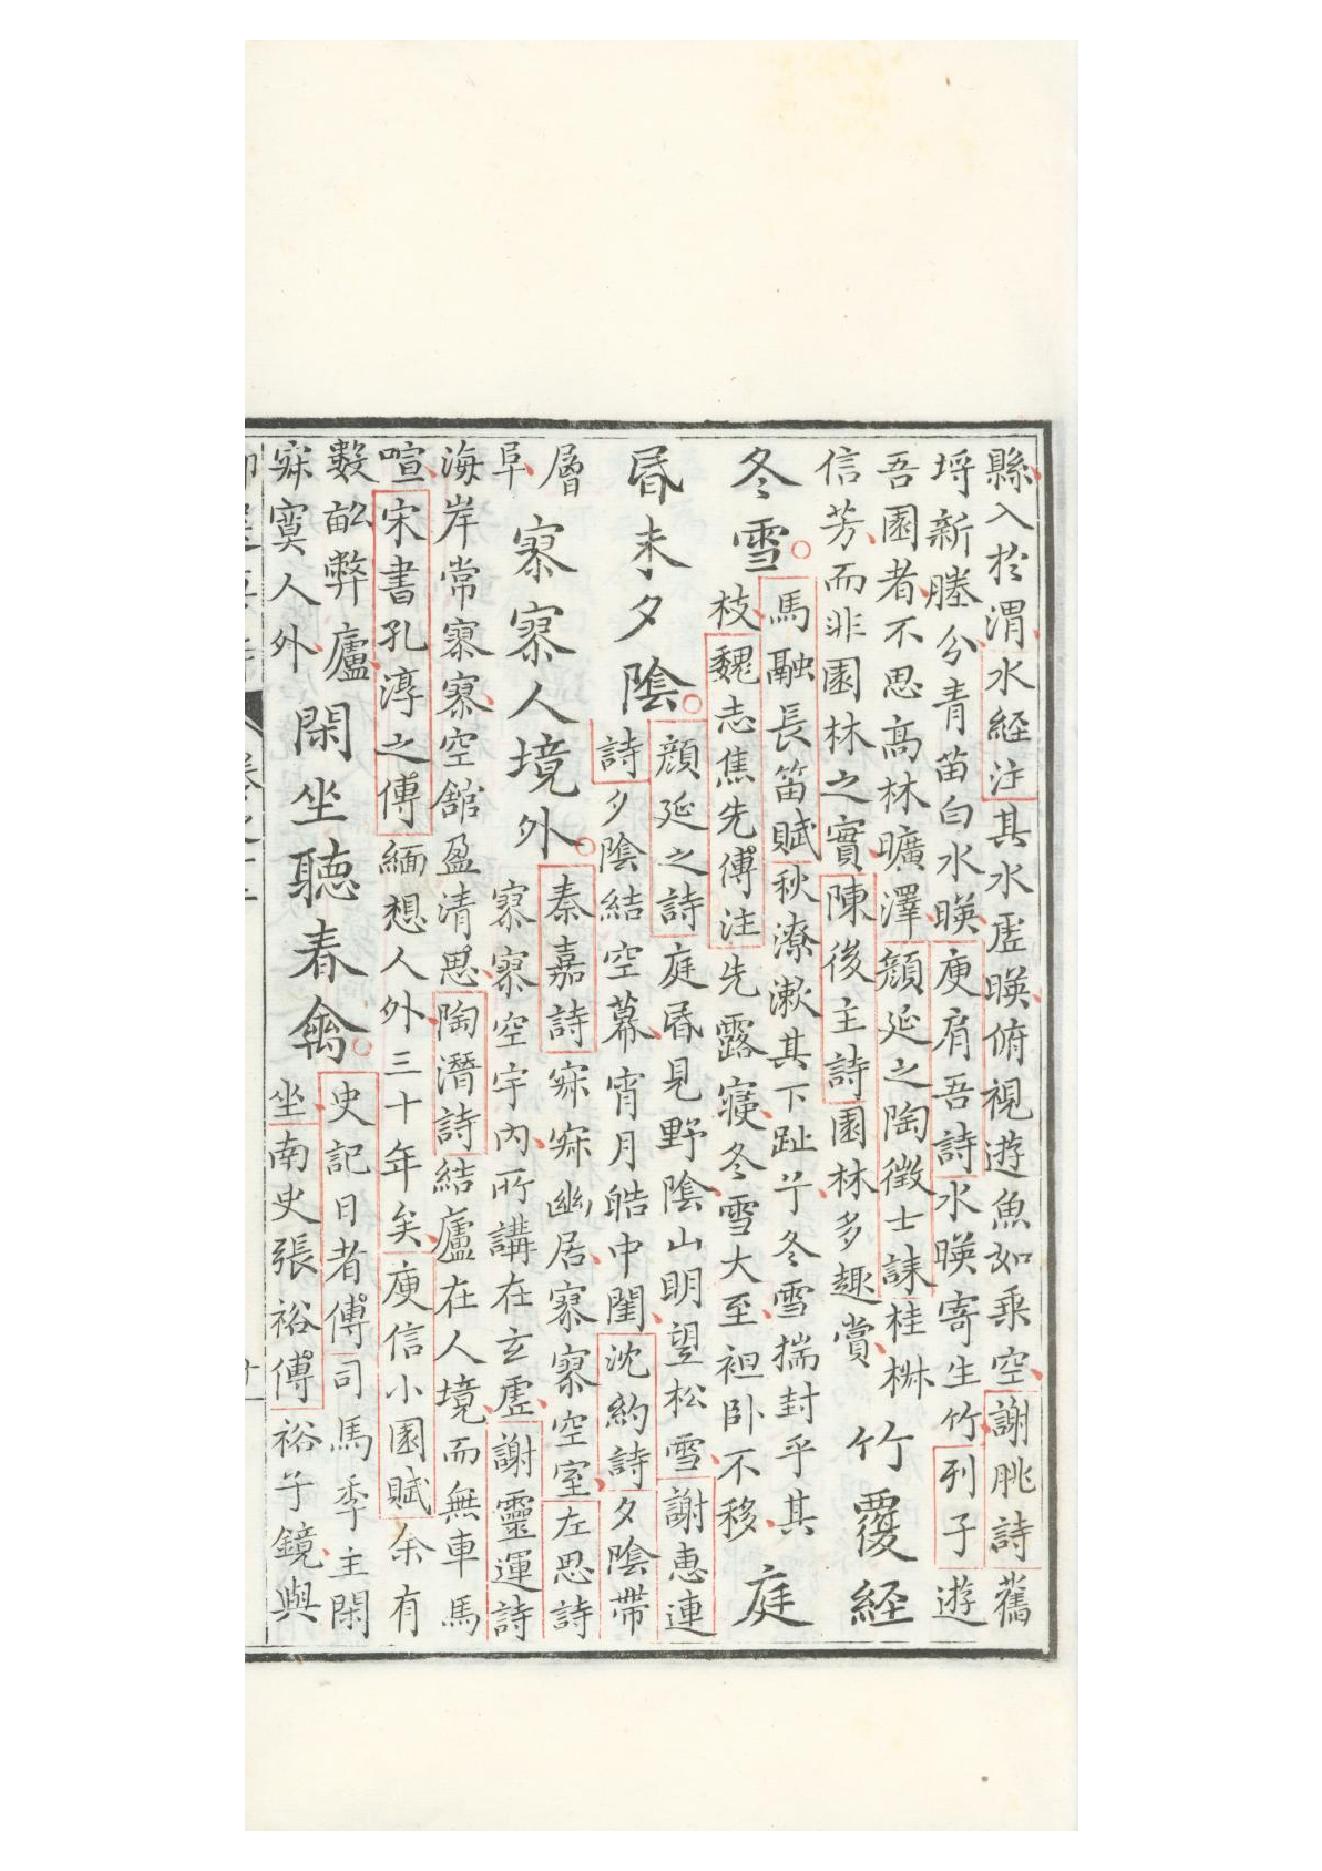 縣入於渭水經注其水虛暎俯視遊魚如乘空謝朓詩舊
埒新塍分青苗白水暎庾肩吾詩水暎寄生竹列子遊
吾園者不思高林曠澤顏延之陶徵士誄桂椒
信芳而非園林之實陳後主詩園林多趣賞
竹覆經
冬雪
馬融長笛賦秋潦漱其下趾兮冬雪揣封乎其
枝魏志焦先傳注先露寢冬雪大至袒卧不移
庭
昬未夕陰
顏延之詩庭昬見野陰山明望松雪謝惠連
詩夕陰結空幕宵月皓中閨沈約詩夕陰帶
層
阜
寥寥人境外
秦嘉詩寂寂幽居寥寥空室左思詩
寥寥空宇內所講在玄虛謝靈運詩
海岸常寥寥空舘盈清思陶潛詩結廬在人境而無車馬
喧宋書孔淳之傳緬想人外三十年矣庾信小園賦余有
數畝弊廬
寂寞人外
閑坐聽春禽
史記日者傳司馬季主閑
坐南史張裕傳裕子鏡與